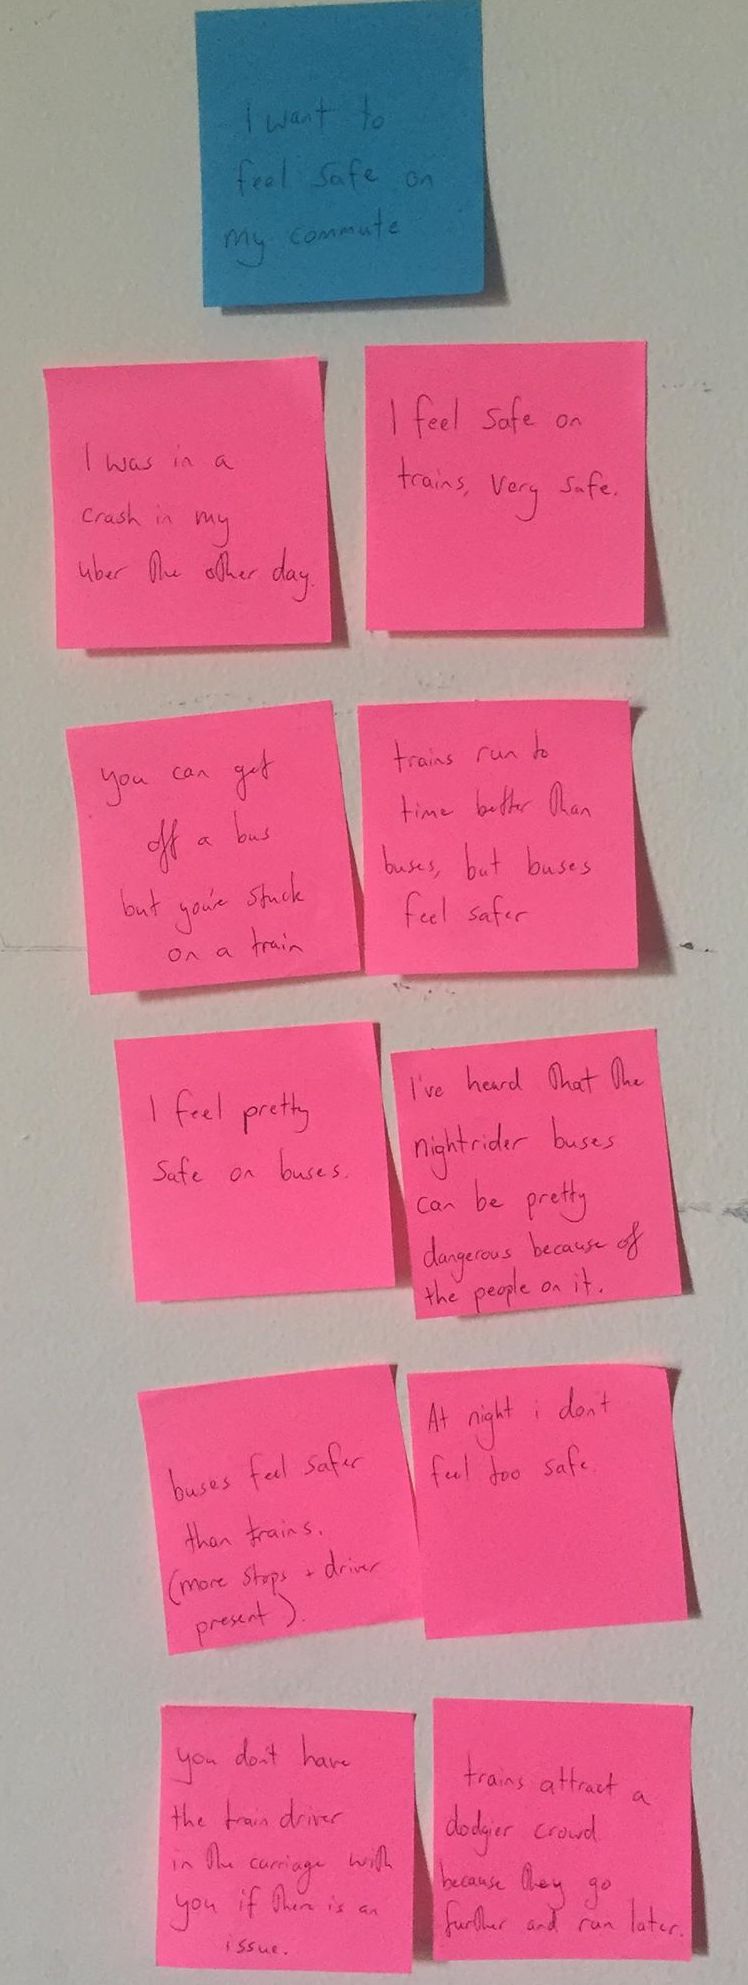 I want to
feel safe on
my commute
I was in a
crash in my
uber the other day.
I feel safe on
trains, very safe.
you can get
off a bus
but you're stuck
on a train
trains run to
time better than
buses, but buses
feel safer
I feel pretty
safe on buses.
I've heard that the
nightrider buses
can be pretty
dangerous because of
the people on it.
buses feel safer
than trains.
(more stops + driver
present).
At night i don't
feel too safe.
you don't have
the train driver
in the carriage with
you if there is an
issue.
trains attract a
dodgier crowd
because they go
further and run later.